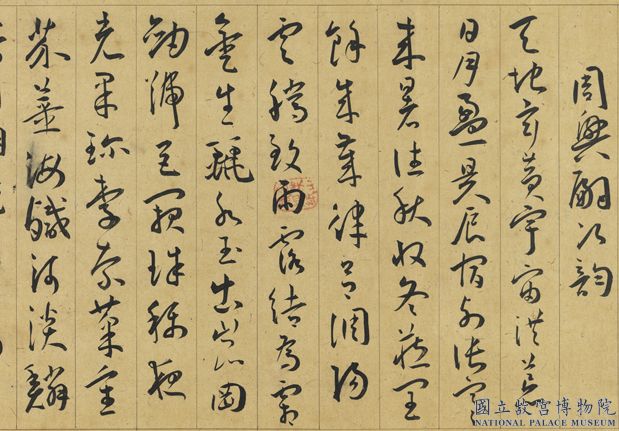 周興嗣次韵
天地玄黃宇宙洪荒
日月盈昃辰宿列張寒
來暑往秋收冬藏閏
餘成歲律呂調陽
云騰致雨露結為霜
金生麗水玉出崑岡
劍號巨闕珠稱夜
光果珍李柰菜重
芥薑海鹹河淡鱗
國立故宮博物院
NATIONAL PALACE MUSEUM